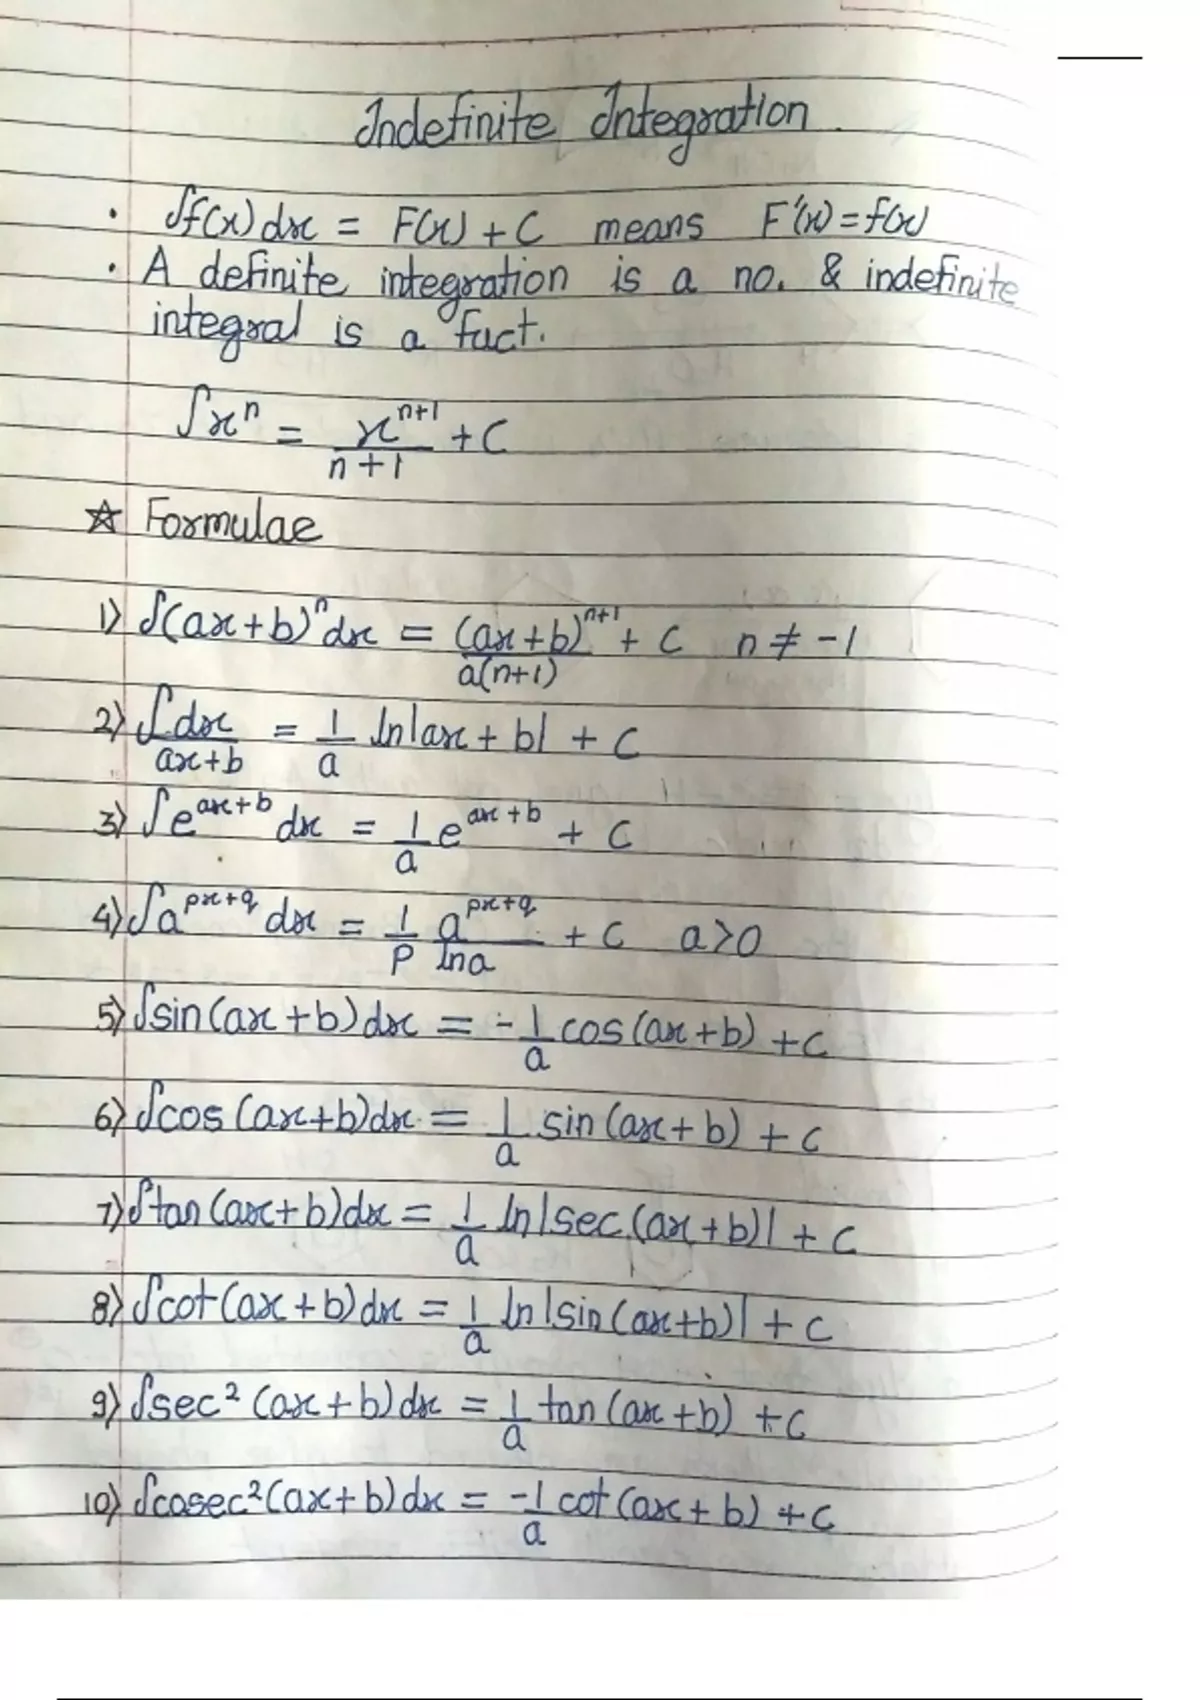 Indefinite Integration
• ∫f(x) dx = F(x) + C means F'(x) = f(x)
• A definite integration is a no. & indefinite
integral is a fuct.
∫xⁿ = xⁿ⁺¹/n+1 + C
☆ Formulae
1) ∫(ax+b)ⁿ dx = (ax+b)ⁿ⁺¹/a(n+1) + C n ≠ -1
2) ∫dx/ax+b = 1/a ln|ax+b| + C
3) ∫e^ax+b dx = 1/a e^ax+b + C
4) ∫a^px+q dx = 1/p a^px+q/ln a + C a>0
5) ∫sin(ax+b) dx = -1/a cos(ax+b) + C
6) ∫cos(ax+b)dx = 1/a sin(ax+b) + C
7) ∫tan(ax+b)dx = 1/a ln|sec(ax+b)| + C
8) ∫cot(ax+b)dx = 1/a ln|sin(ax+b)| + C
9) ∫sec²(ax+b)dx = 1/a tan(ax+b) + C
10) ∫cosec²(ax+b)dx = -1/a cot(ax+b) + C